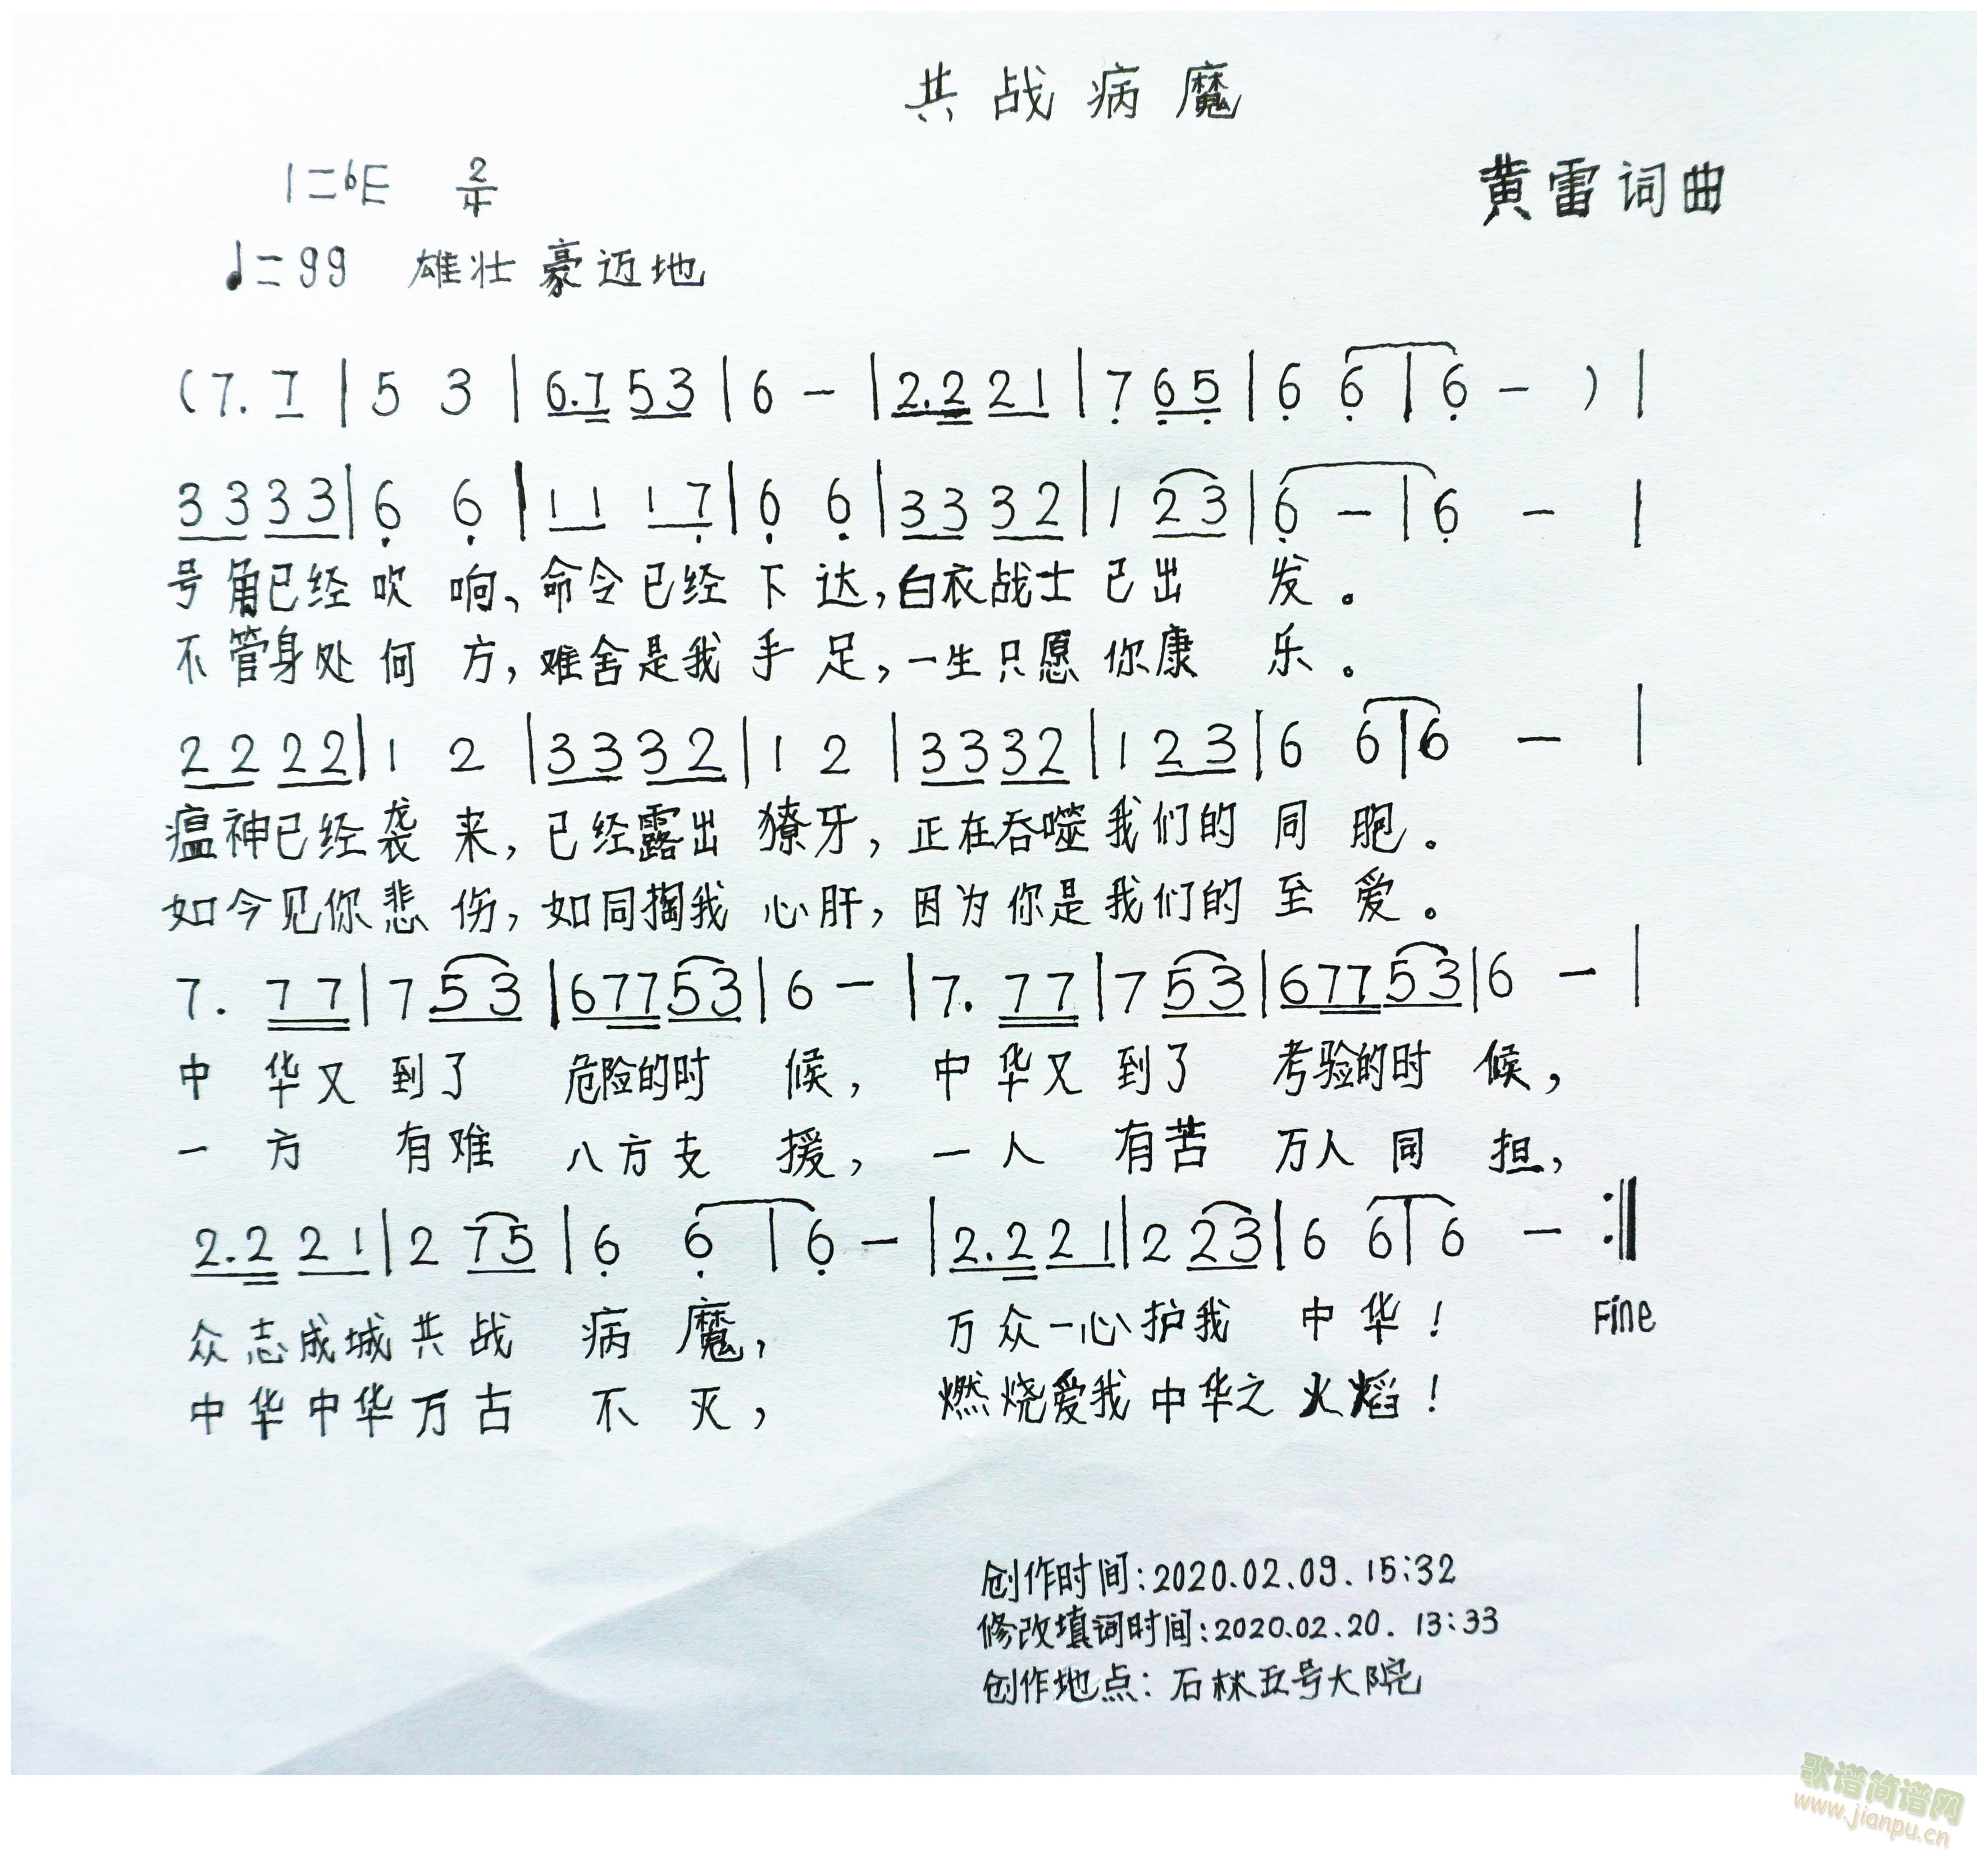 共战病魔
1=♭E 2/4
黄雷词曲
♩=99 雄壮豪迈地
(7. 7 | 5 3 | 6.7 53 | 6 - | 2.2 21 | 7 65 | 6 6 | 6 - ) |
33 33 | 6 6 | 11 17 | 6 6 | 33 32 | 1 23 | 6 - | 6 - |
号角已经吹响、命令已经下达,白衣战士已出发。
不管身处何方,难舍是我手足,一生只愿你康乐。
22 22 | 1 2 | 33 32 | 1 2 | 33 32 | 1 23 | 6 6 | 6 - |
瘟神已经袭来,已经露出獠牙,正在吞噬我们的同胞。
如今见你悲伤,如同掏我心肝,因为你是我们的至爱。
7. 77 | 7 53 | 677 53 | 6 - | 7. 77 | 7 53 | 677 53 | 6 - |
中华又到了危险的时候,中华又到了考验的时候,
一方有难八方支援,一人有苦万人同担,
2.2 21 | 2 75 | 6 6 | 6 - | 2.2 21 | 2 23 | 6 6 | 6 - :||
众志成城共战病魔,万众一心护我中华! Fine
中华中华万古不灭,燃烧爱我中华之火焰!
创作时间:2020.02.09.15:32
修改填词时间:2020.02.20.13:33
创作地点:石林五号大院
歌谱简谱网
www.jianpu.cn